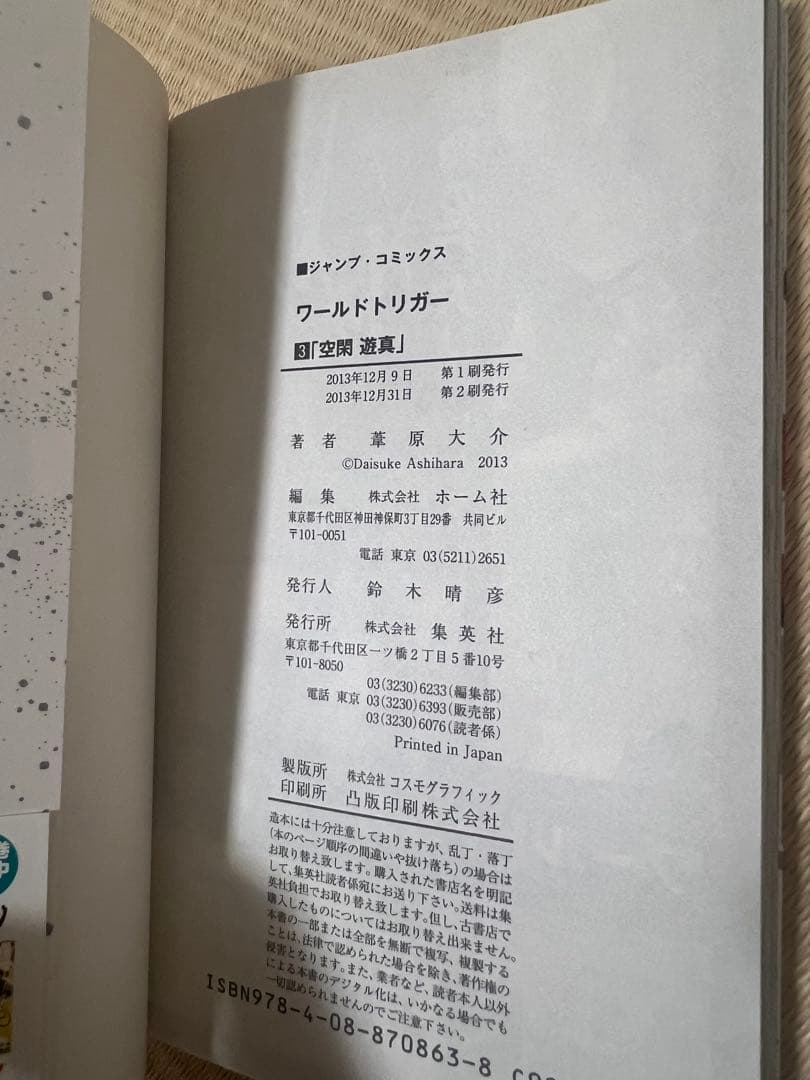 ■ジャンプ・コミックス
ワールドトリガー
3「空閑 遊真」
2013年12月9日 第1刷発行
2013年12月31日 第2刷発行
著者 葦原大介
©Daisuke Ashihara 2013
編集 株式会社 ホーム社
東京都千代田区神田神保町3丁目29番 共同ビル
〒101-0051
電話 東京 03(5211)2651
発行人 鈴木晴彦
発行所 株式会社 集英社
東京都千代田区一ツ橋2丁目5番10号
〒101-8050
03(3230)6233(編集部)
電話 東京 03(3230)6393(販売部)
03(3230)6076(読者係)
Printed in Japan
製版所 株式会社 コスモグラフィック
印刷所 凸版印刷株式会社
造本には十分注意しておりますが、乱丁・落丁
(本のページ順序の間違いや抜け落ち)の場合は
お取り替え致します。購入された書店名を明記
して、集英社読者係宛にお送り下さい。送料は集
英社負担でお取り替え致します。但し、古書店で
購入したものについてはお取り替え出来ません。
本書の一部または全部を無断で複写、複製する
ことは、法律で認められた場合を除き、著作権の
侵害となります。また、業者など、読者本人以外
による本書のデジタル化は、いかなる場合でも
一切認められませんのでご注意下さい。
ISBN978-4-08-870863-8